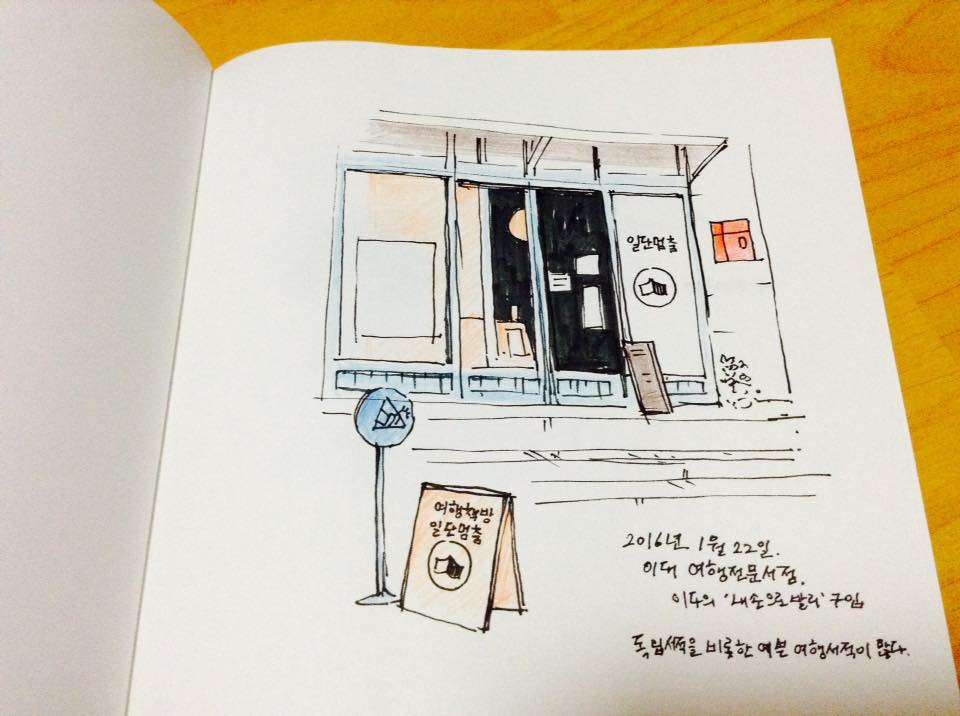 일단멈춤
여행책방
일단멈춤
2016년 1월 22일.
이대 여행전문서점.
이다의 '내손으로발리' 구입
독립서적을 비롯한 예쁜 여행서적이 많다.